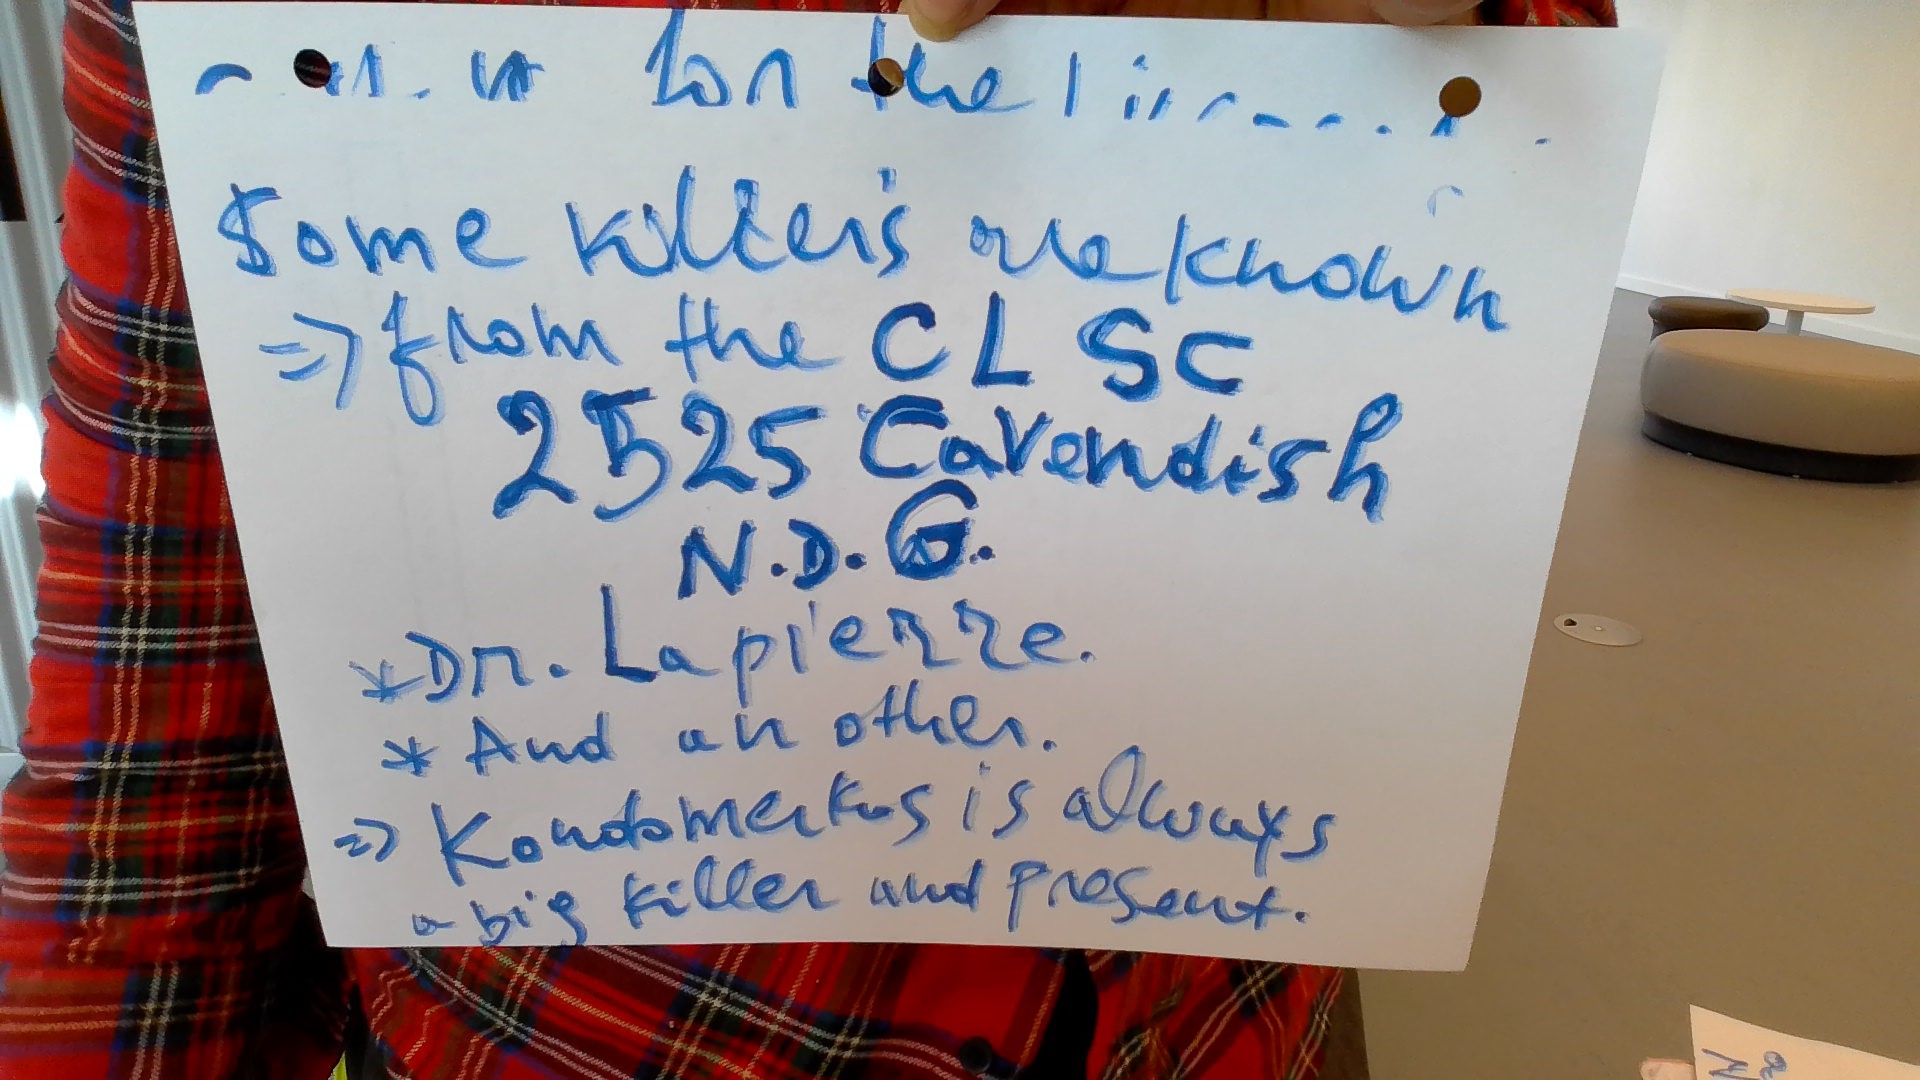 for the
Some killers are known
=> from the CLSC
2525 Cavendish
N.D.G.
* Dr. Lapierre.
* And an other.
=> is always
a big killer and present.